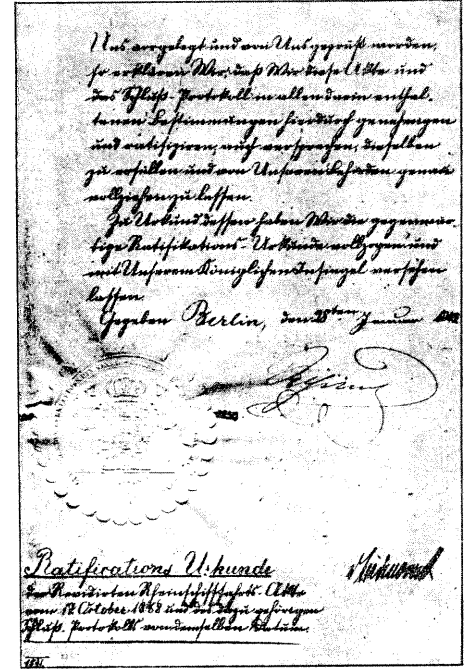 Uns vorgelegt und von Uns geprüft worden,
so erklären Wir, daß Wir diese Akte und
das Schluß-Protokoll in allen darin enthal-
tenen Bestimmungen hierdurch genehmigen
und ratifiziren, auch versprechen, dieselben
zu erfüllen und von Unseren Behörden genau
vollziehen zu lassen.
Zu Urkund dessen haben Wir die gegenwär-
tige Ratifikations-Urkunde vollzogen und
mit Unserem Königlichen Insiegel versehen
lassen.
Gegeben Berlin, den 28ten Januar
Ratifications Urkunde
der Revidirten Rheinschifffahrts-Akte
vom 17 October 1868 und des dazu gehörigen
Schluß-Protokolls von demselben Datum.